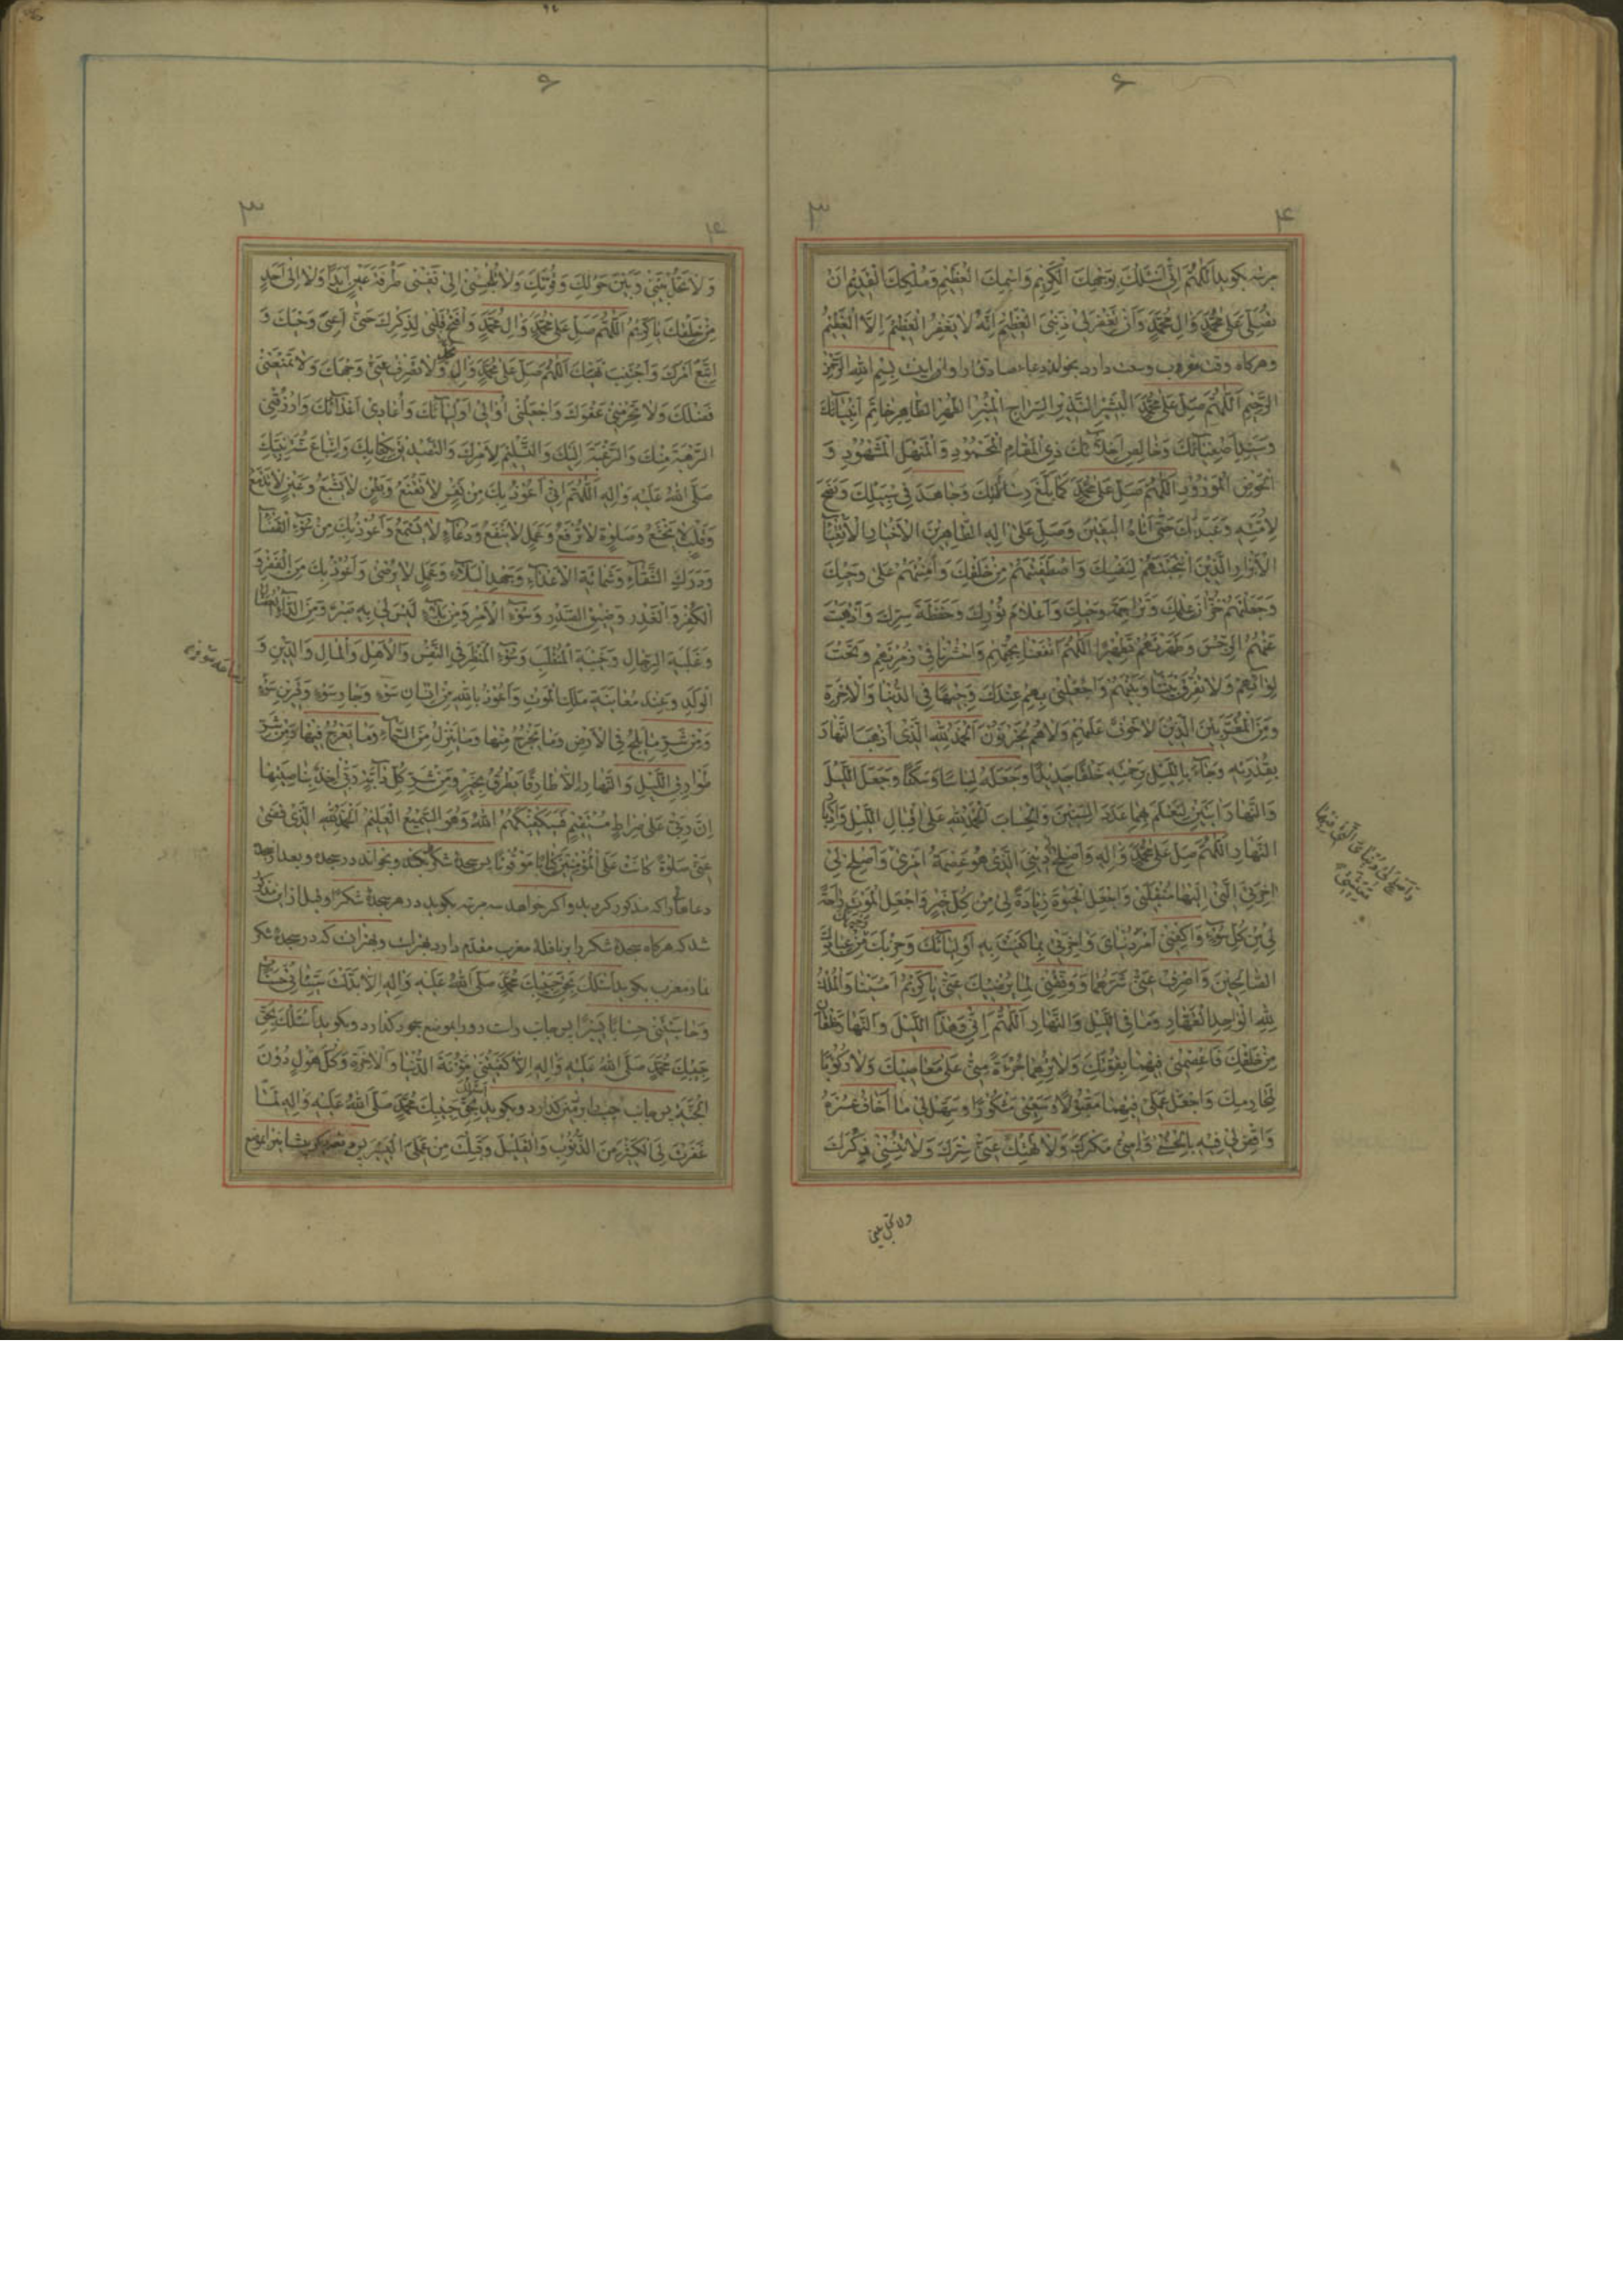 مرتبه بكويد اَللّٰهُمَّ اِنّي اَسْئَلُكَ بِوَجْهِكَ الْكَريمِ وَاسْمِكَ الْعَظيمِ وَمُلْكِكَ الْقَديمِ اَنْ
تُصَلِّيَ عَلىٰ مُحَمَّدٍ وَاٰلِ مُحَمَّدٍ وَاَنْ تَغْفِرَ لي ذَنْبِيَ الْعَظيمَ اِنَّهُ لا يَغْفِرُ الْعَظيمَ اِلَّا الْعَظيمُ
وهركاه وقت مغرب وسعت دارد بخواند دعاء صادق را و آن اينست بِسْمِ اللهِ الرَّحْمٰنِ
الرَّحيمِ اَللّٰهُمَّ صَلِّ عَلىٰ مُحَمَّدٍ الْبَشيرِ النَّذيرِ السِّراجِ الْمُنيرِ الطُّهْرِ الطّاهِرِ خاتَمِ اَنْبِيآئِكَ
وَسَيِّدِ اَصْفِيآئِكَ وَخالِصِ اَخِلّآئِكَ ذِي الْمَقامِ الْمَحْمُودِ وَالْمَنْهَلِ الْمَشْهُودِ وَ
الْحَوْضِ الْمَوْرُودِ اَللّٰهُمَّ صَلِّ عَلىٰ مُحَمَّدٍ كَما بَلَّغَ رِسالاتِكَ وَجاهَدَ في سَبيلِكَ وَنَصَحَ
لِاُمَّتِهِ وَعَبَدَكَ حَتّىٰ اَتاهُ الْيَقينُ وَصَلِّ عَلىٰ اٰلِهِ الطّاهِرينَ الْاَخْيارِ الْاَتْقِيآءِ
الْاَبْرارِ الَّذينَ انْتَجَبْتَهُمْ لِنَفْسِكَ وَاصْطَفَيْتَهُمْ مِنْ خَلْقِكَ وَاَمِنْتَهُمْ عَلىٰ وَحْيِكَ
وَجَعَلْتَهُمْ خُزّانَ عِلْمِكَ وَتَراجِمَةَ وَحْيِكَ وَاَعْلامَ نُورِكَ وَحَفَظَةَ سِرِّكَ وَاَذْهَبْتَ
عَنْهُمُ الرِّجْسَ وَطَهَّرْتَهُمْ تَطْهيرًا اَللّٰهُمَّ انْفَعْنا بِحُبِّهِمْ وَاحْشُرْنا في زُمْرَتِهِمْ وَتَحْتَ
لِوآئِهِمْ وَلا تُفَرِّقْ بَيْنَنا وَبَيْنَهُمْ وَاجْعَلْني بِهِمْ عِنْدَكَ وَجيهًا فِي الدُّنْيا وَالْاٰخِرَةِ
وَمِنَ الْمُقَرَّبينَ الَّذينَ لا خَوْفٌ عَلَيْهِمْ وَلا هُمْ يَحْزَنُونَ اَلْحَمْدُ لِلّٰهِ الَّذي اَذْهَبَ النَّهارَ
بِقُدْرَتِهِ وَجآءَ بِاللَّيْلِ بِرَحْمَتِهِ خَلْقًا جَديدًا وَجَعَلَهُ لِباسًا وَسَكَنًا وَجَعَلَ اللَّيْلَ
وَالنَّهارَ اٰيَتَيْنِ لِيُعْلَمَ بِهِما عَدَدُ السِّنينَ وَالْحِسابَ اَلْحَمْدُ لِلّٰهِ عَلىٰ اِقْبالِ اللَّيْلِ وَاِدْبارِ
النَّهارِ اَللّٰهُمَّ صَلِّ عَلىٰ مُحَمَّدٍ وَاٰلِهِ وَاَصْلِحْ لي دينِيَ الَّذي هُوَ عِصْمَةُ اَمْري وَاَصْلِحْ لي
اٰخِرَتِيَ الَّتي اِلَيْها مُنْقَلَبي وَاجْعَلِ الْحَيٰوةَ زِيادَةً لي مِنْ كُلِّ خَيْرٍ وَاجْعَلِ الْمَوْتَ راحَةً
لي مِنْ كُلِّ سُوءٍ وَاكْفِني اَمْرَ دُنْيايَ وَاٰخِرَتي بِما كَفَيْتَ بِهِ اَوْلِيآئَكَ وَحِزْبَكَ مِنْ عِبادِكَ
الصّالِحينَ وَاصْرِفْ عَنّي شَرَّهُما وَوَفِّقْني لِما يُرْضيكَ عَنّي يا كَريمُ اَمْسَيْنا وَالْمُلْكُ
لِلّٰهِ الْواحِدِ الْقَهّارِ وَما فِي اللَّيْلِ وَالنَّهارِ اَللّٰهُمَّ اِنّي وَهٰذَا اللَّيْلَ وَالنَّهارَ خَلْقانِ
مِنْ خَلْقِكَ فَاعْصِمْني فيهِما بِقُوَّتِكَ وَلا تُرِهِما جُرْءَةً مِنّي عَلىٰ مَعاصيكَ وَلا رُكُوبًا
لِمَحارِمِكَ وَاجْعَلْ عَمَلي فيهِما مَقْبُولًا وَسَعْيي مَشْكُورًا وَسَهِّلْ لي ما اَخافُ عُسْرَهُ
وَاقْضِ لي فيهِ بِالْحُسْنىٰ وَاٰمِنّي مَكْرَكَ وَلا تَهْتِكْ عَنّي سِتْرَكَ وَلا تُنْسِني ذِكْرَكَ
وَلا تَحُلْ بَيْني وَبَيْنَ حَوْلِكَ وَقُوَّتِكَ وَلا تُلْجِئْني اِلىٰ نَفْسي طَرْفَةَ عَيْنٍ اَبَدًا وَلا اِلىٰ اَحَدٍ
مِنْ خَلْقِكَ يا كَريمُ اَللّٰهُمَّ صَلِّ عَلىٰ مُحَمَّدٍ وَاٰلِ مُحَمَّدٍ وَافْتَحْ قَلْبي لِذِكْرِكَ حَتّىٰ اَعِيَ وَحْيَكَ وَ
اَتَّبِعَ اَمْرَكَ وَاَجْتَنِبَ نَهْيَكَ اَللّٰهُمَّ صَلِّ عَلىٰ مُحَمَّدٍ وَاٰلِهِ وَلا تَصْرِفْ عَنّي وَجْهَكَ وَلا تَمْنَعْني
فَضْلَكَ وَلا تَحْرِمْني عَفْوَكَ وَاجْعَلْني اُوالي اَوْلِيآئَكَ وَاُعادي اَعْدآئَكَ وَارْزُقْنِي
الرَّهْبَةَ مِنْكَ وَالرَّغْبَةَ اِلَيْكَ وَالتَّسْليمَ لِاَمْرِكَ وَالتَّصْديقَ بِكِتابِكَ وَاتِّباعَ سُنَّةِ نَبِيِّكَ
صَلَّى اللهُ عَلَيْهِ وَاٰلِهِ اَللّٰهُمَّ اِنّي اَعُوذُ بِكَ مِنْ نَفْسٍ لا تَقْنَعُ وَبَطْنٍ لا يَشْبَعُ وَعَيْنٍ لا تَدْمَعُ
وَقَلْبٍ لا يَخْشَعُ وَصَلٰوةٍ لا تُرْفَعُ وَعَمَلٍ لا يَنْفَعُ وَدُعآءٍ لا يُسْمَعُ وَاَعُوذُ بِكَ مِنْ سُوءِ الْقَضآءِ
وَدَرَكِ الشَّقآءِ وَشَماتَةِ الْاَعْدآءِ وَجَهْدِ الْبَلآءِ وَعَمَلٍ لا يُرْضىٰ وَاَعُوذُ بِكَ مِنَ الْفَقْرِ وَ
الْكُفْرِ وَالْغَدْرِ وَضيقِ الصَّدْرِ وَسُوءِ الْاَمْرِ وَمِنْ بَلآءٍ لَيْسَ لي بِهِ صَبْرٌ وَمِنَ الدّآءِ الْعُضالِ
وَغَلَبَةِ الرِّجالِ وَخَيْبَةِ الْمُنْقَلَبِ وَسُوءِ الْمَنْظَرِ فِي النَّفْسِ وَالْاَهْلِ وَالْمالِ وَالدّينِ وَ
الْوَلَدِ وَعِنْدَ مُعايَنَةِ مَلَكِ الْمَوْتِ وَاَعُوذُ بِاللهِ مِنْ اِنْسانِ سَوْءٍ وَجارِ سَوْءٍ وَقَرينِ سَوْءٍ
وَمِنْ شَرِّ ما يَلِجُ فِي الْاَرْضِ وَما يَخْرُجُ مِنْها وَما يَنْزِلُ مِنَ السَّمآءِ وَما يَعْرُجُ فيها وَمِنْ شَرِّ
طَوارِقِ اللَّيْلِ وَالنَّهارِ اِلّا طارِقًا يَطْرُقُ بِخَيْرٍ وَمِنْ شَرِّ كُلِّ دآبَّةٍ رَبّي اٰخِذٌ بِناصِيَتِها
اِنَّ رَبّي عَلىٰ صِراطٍ مُسْتَقيمٍ فَسَيَكْفيكَهُمُ اللهُ وَهُوَ السَّميعُ الْعَليمُ اَلْحَمْدُ لِلّٰهِ الَّذي قَضىٰ
عَنّي صَلٰوةً كانَتْ عَلَى الْمُؤْمِنينَ كِتابًا مَوْقُوتًا پس سجدهٔ شكر بكند وبخواند در سجده وبعد از سجده
دعاها را كه مذكور كرديد و اكر خواهد سه مرتبه بكويد در هر سجدهٔ شُكْرًا وقبل ازين مذكور
شد كه هركاه سجدهٔ شكر را بر نافلهٔ مغرب مقدم دارد بهتر است وبهتر آن كه در سجدهٔ شكر
نماز مغرب بكويد اَسْئَلُكَ بِحَقِّ حَبيبِكَ مُحَمَّدٍ صَلَّى اللهُ عَلَيْهِ وَاٰلِهِ اِلّا بَدَّلْتَ سَيِّئاتي حَسَناتٍ
وَحاسَبْتَني حِسابًا يَسيرًا پس جانب راست رو را بموضع سجود كذارد وبكويد اَسْئَلُكَ بِحَقِّ
حَبيبِكَ مُحَمَّدٍ صَلَّى اللهُ عَلَيْهِ وَاٰلِهِ اِلّا كَفَيْتَني مَؤُنَةَ الدُّنْيا وَالْاٰخِرَةِ وَكُلَّ هَوْلٍ دُونَ
الْجَنَّةِ پس جانب چپ را بر زمين كذارد وبكويد اَسْئَلُكَ بِحَقِّ حَبيبِكَ مُحَمَّدٍ صَلَّى اللهُ عَلَيْهِ وَاٰلِهِ لَمّا
غَفَرْتَ لِيَ الْكَثيرَ مِنَ الذُّنُوبِ وَالْقَليلَ وَقَبِلْتَ مِنْ عَمَلِيَ الْيَسيرَ پس